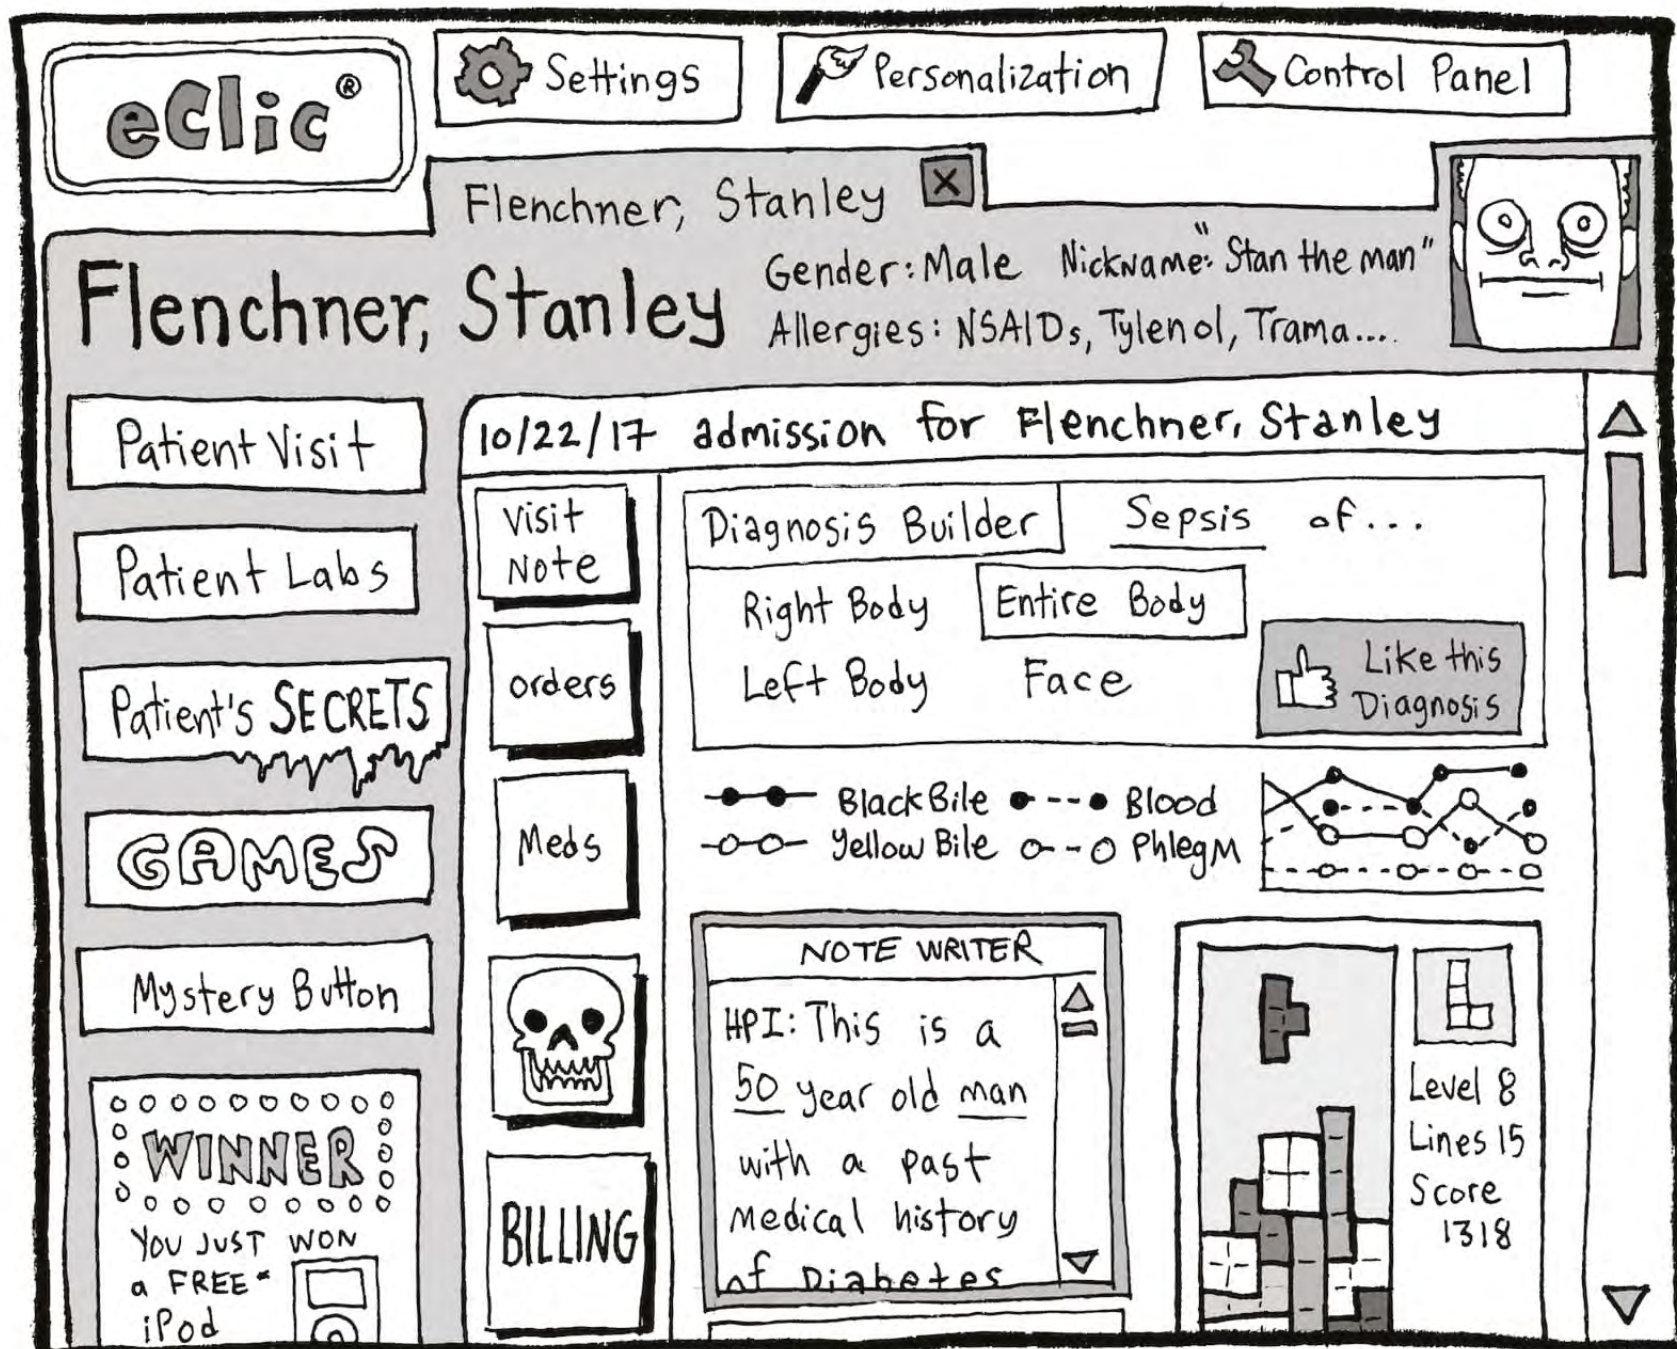 eClic®
Settings
Personalization
Control Panel
Flenchner, Stanley X
Flenchner, Stanley
Gender: Male Nickname: "Stan the man"
Allergies: NSAIDs, Tylenol, Trama....
Patient Visit
Patient Labs
Patient's SECRETS
GAMES
Mystery Button
WINNER
YOU JUST WON
a FREE*
iPod
10/22/17 admission for Flenchner, Stanley
Visit
Note
orders
Meds
BILLING
Diagnosis Builder
Sepsis of...
Right Body
Entire Body
Left Body
Face
Like this
Diagnosis
Black Bile
Blood
Yellow Bile
Phlegm
NOTE WRITER
HPI: This is a
50 year old man
with a past
medical history
of Diabetes
Level 8
Lines 15
Score
1318